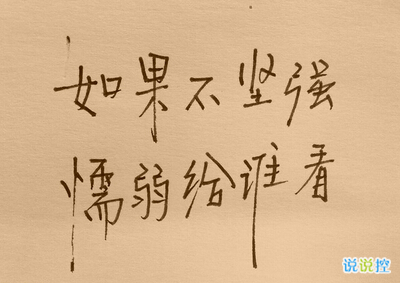 如果不坚强
懦弱给谁看
说说控